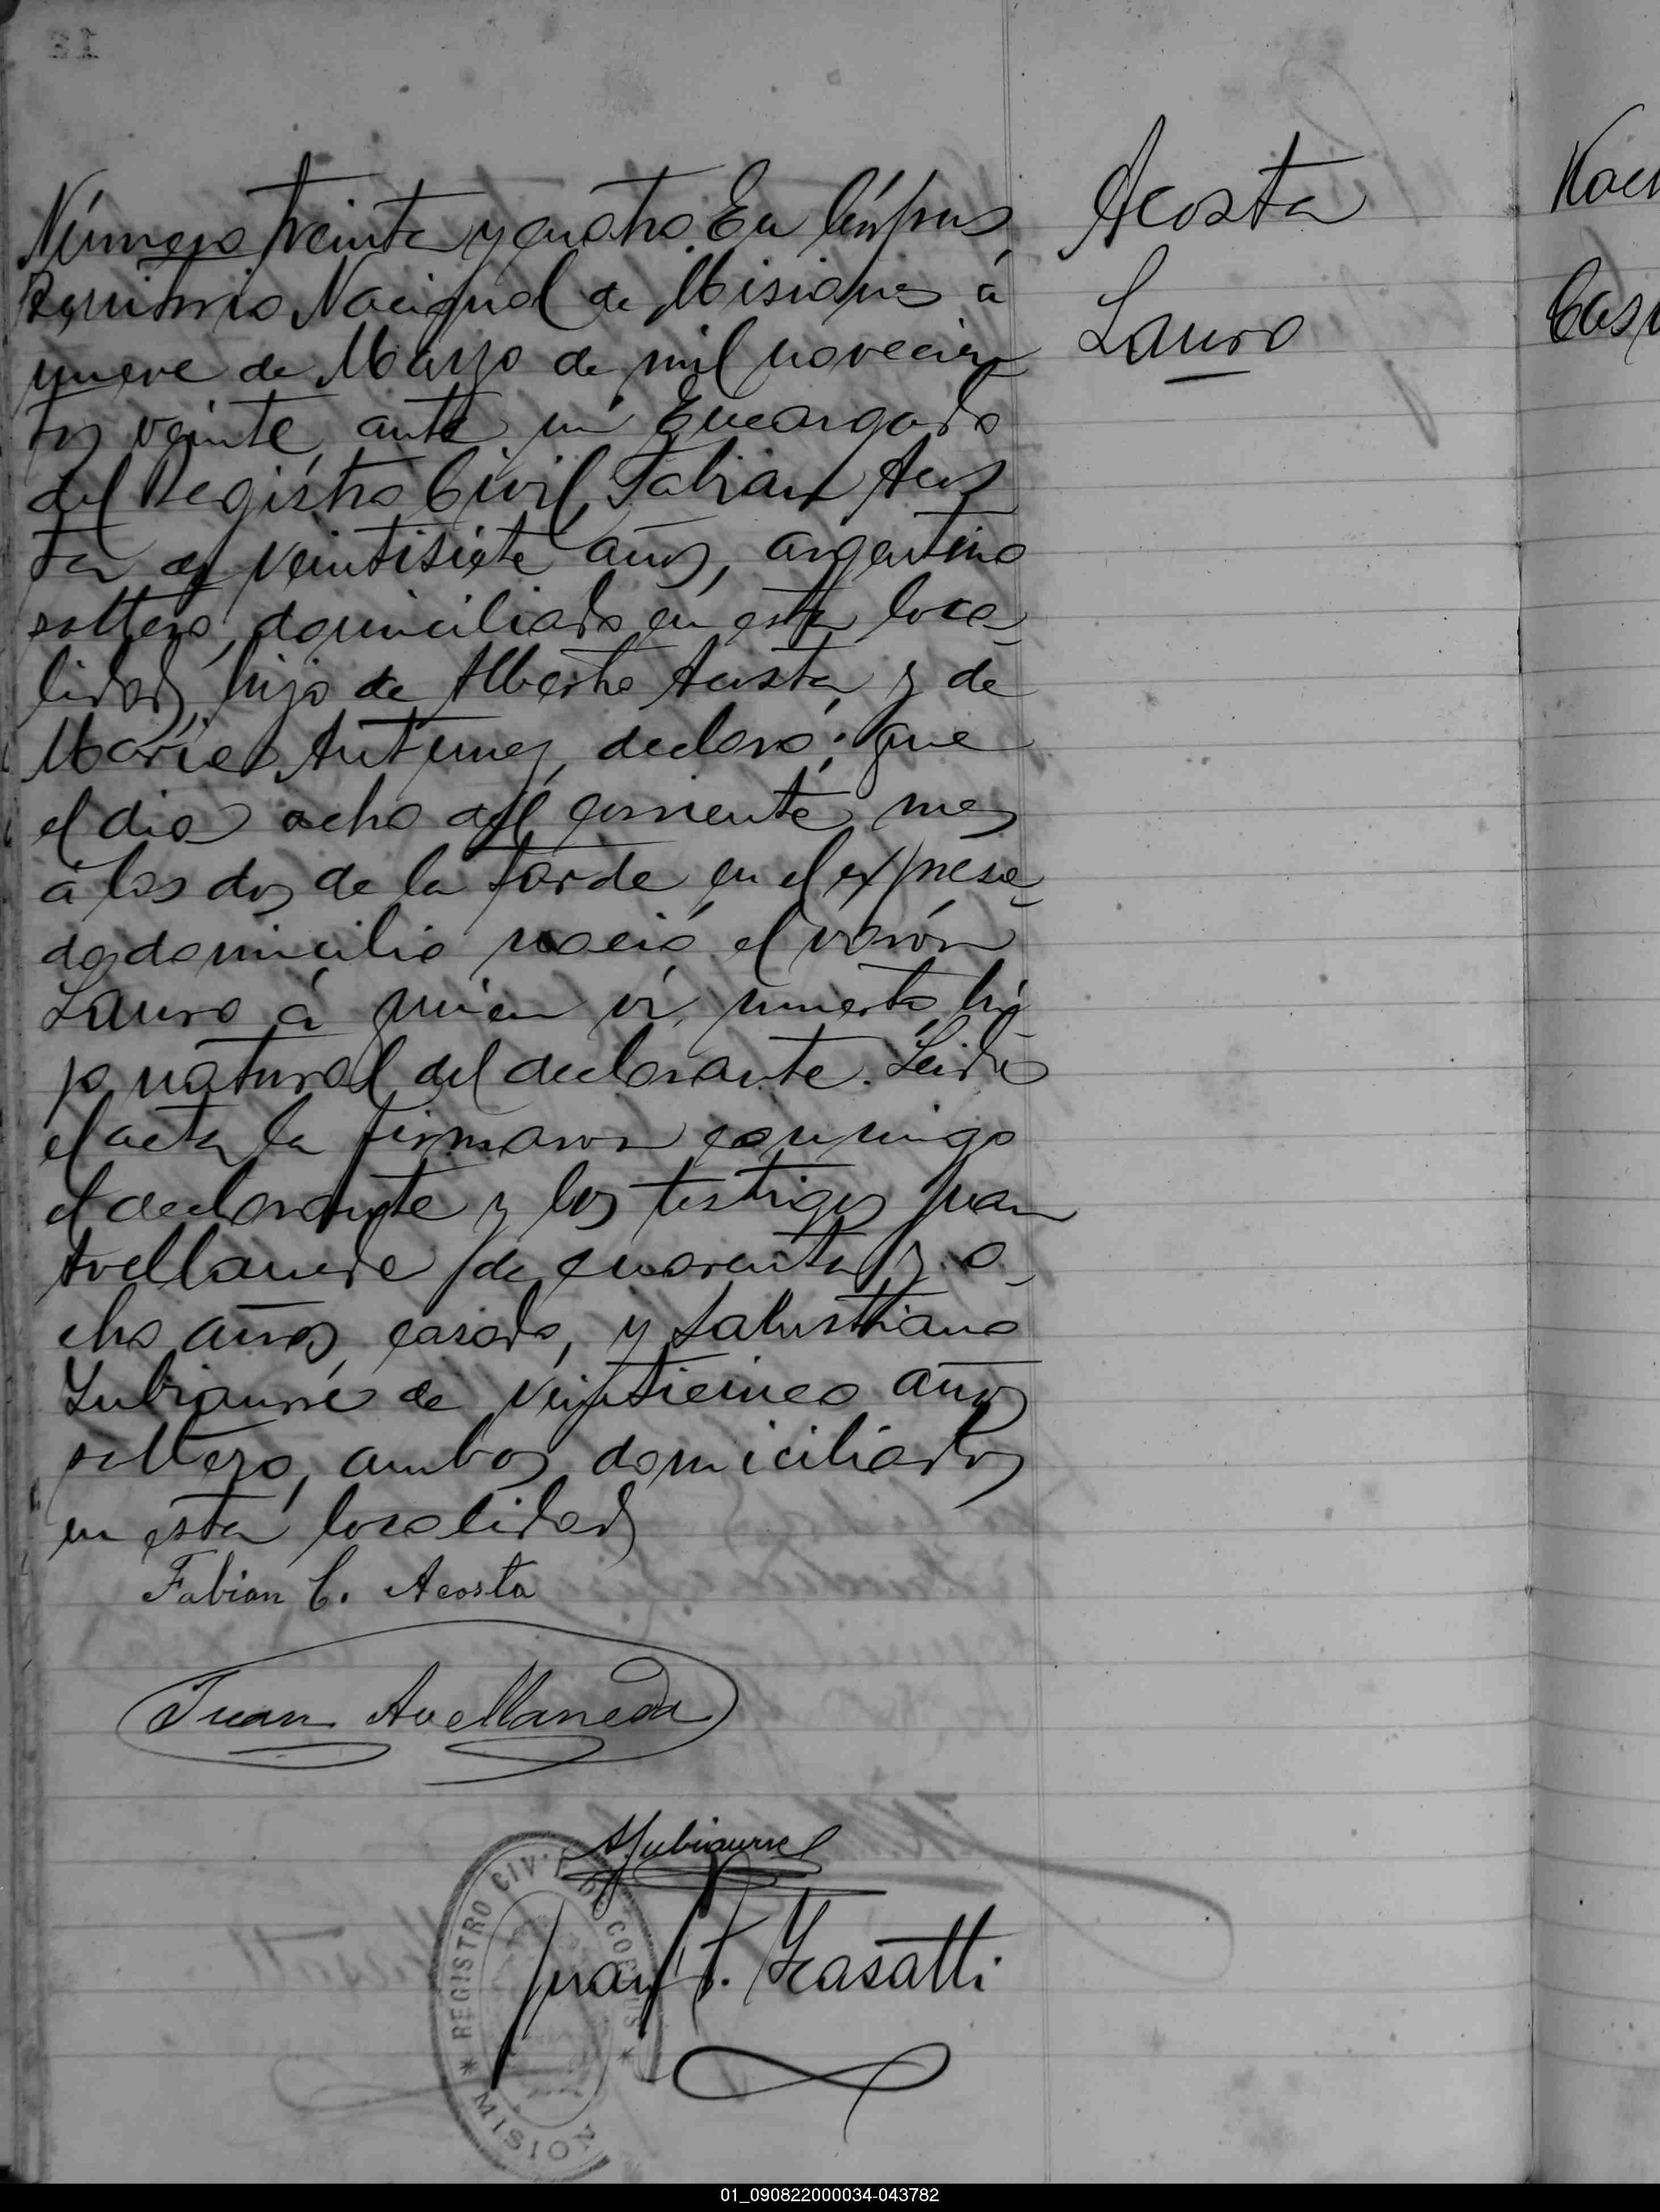 Acosta
Lauro
Número treinta y cuatro. En Córpus,
Territorio Nacional de Misiones á
nueve de Marzo de mil novecien
tos veinte, ante mi Encargado
del Registro Civil, Fabian Acos
ta de veintisiete años, argentino
soltero, domiciliado en esta loca_
lidad, hijo de Alberto Acosta, y de
María Antunez, declaró; que
el dia ocho del corriente mes
á las dos de la tarde en el expresa_
do domicilio nació el varón
Lauro á quien ví muerto, hi_
jo natural del declarante. Leida
el acta la firmaron conmigo
el declarante y los testigos Juan
Avellaneda de cuarenta y o_
cho años, casado, y Salustiano
Zubiaurre de veinticinco años
soltero, ambos domiciliados
en esta localidad
Fabian C. Acosta
Juan Avellaneda
SZubiaurre
Juan
REGISTRO CIVIL DE CORPUS
MISION
01_090822000034-043782